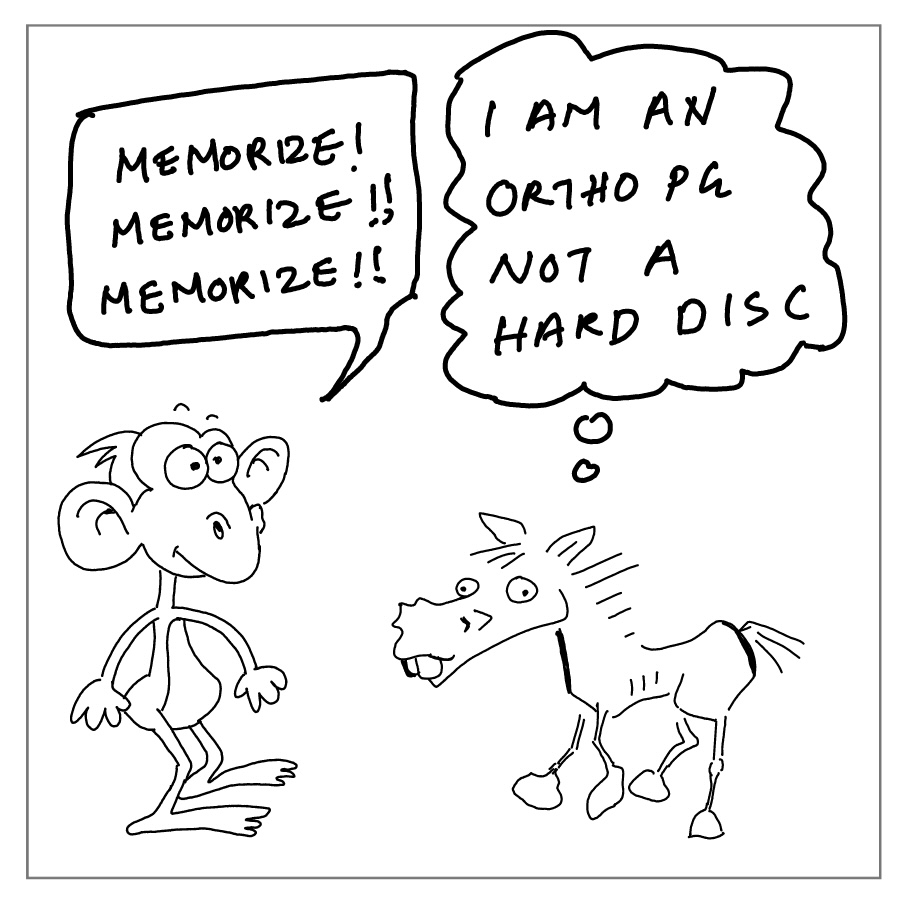 MEMORIZE!
MEMORIZE!!
MEMORIZE!!
I AM AN
ORTHO PG
NOT A
HARD DISC